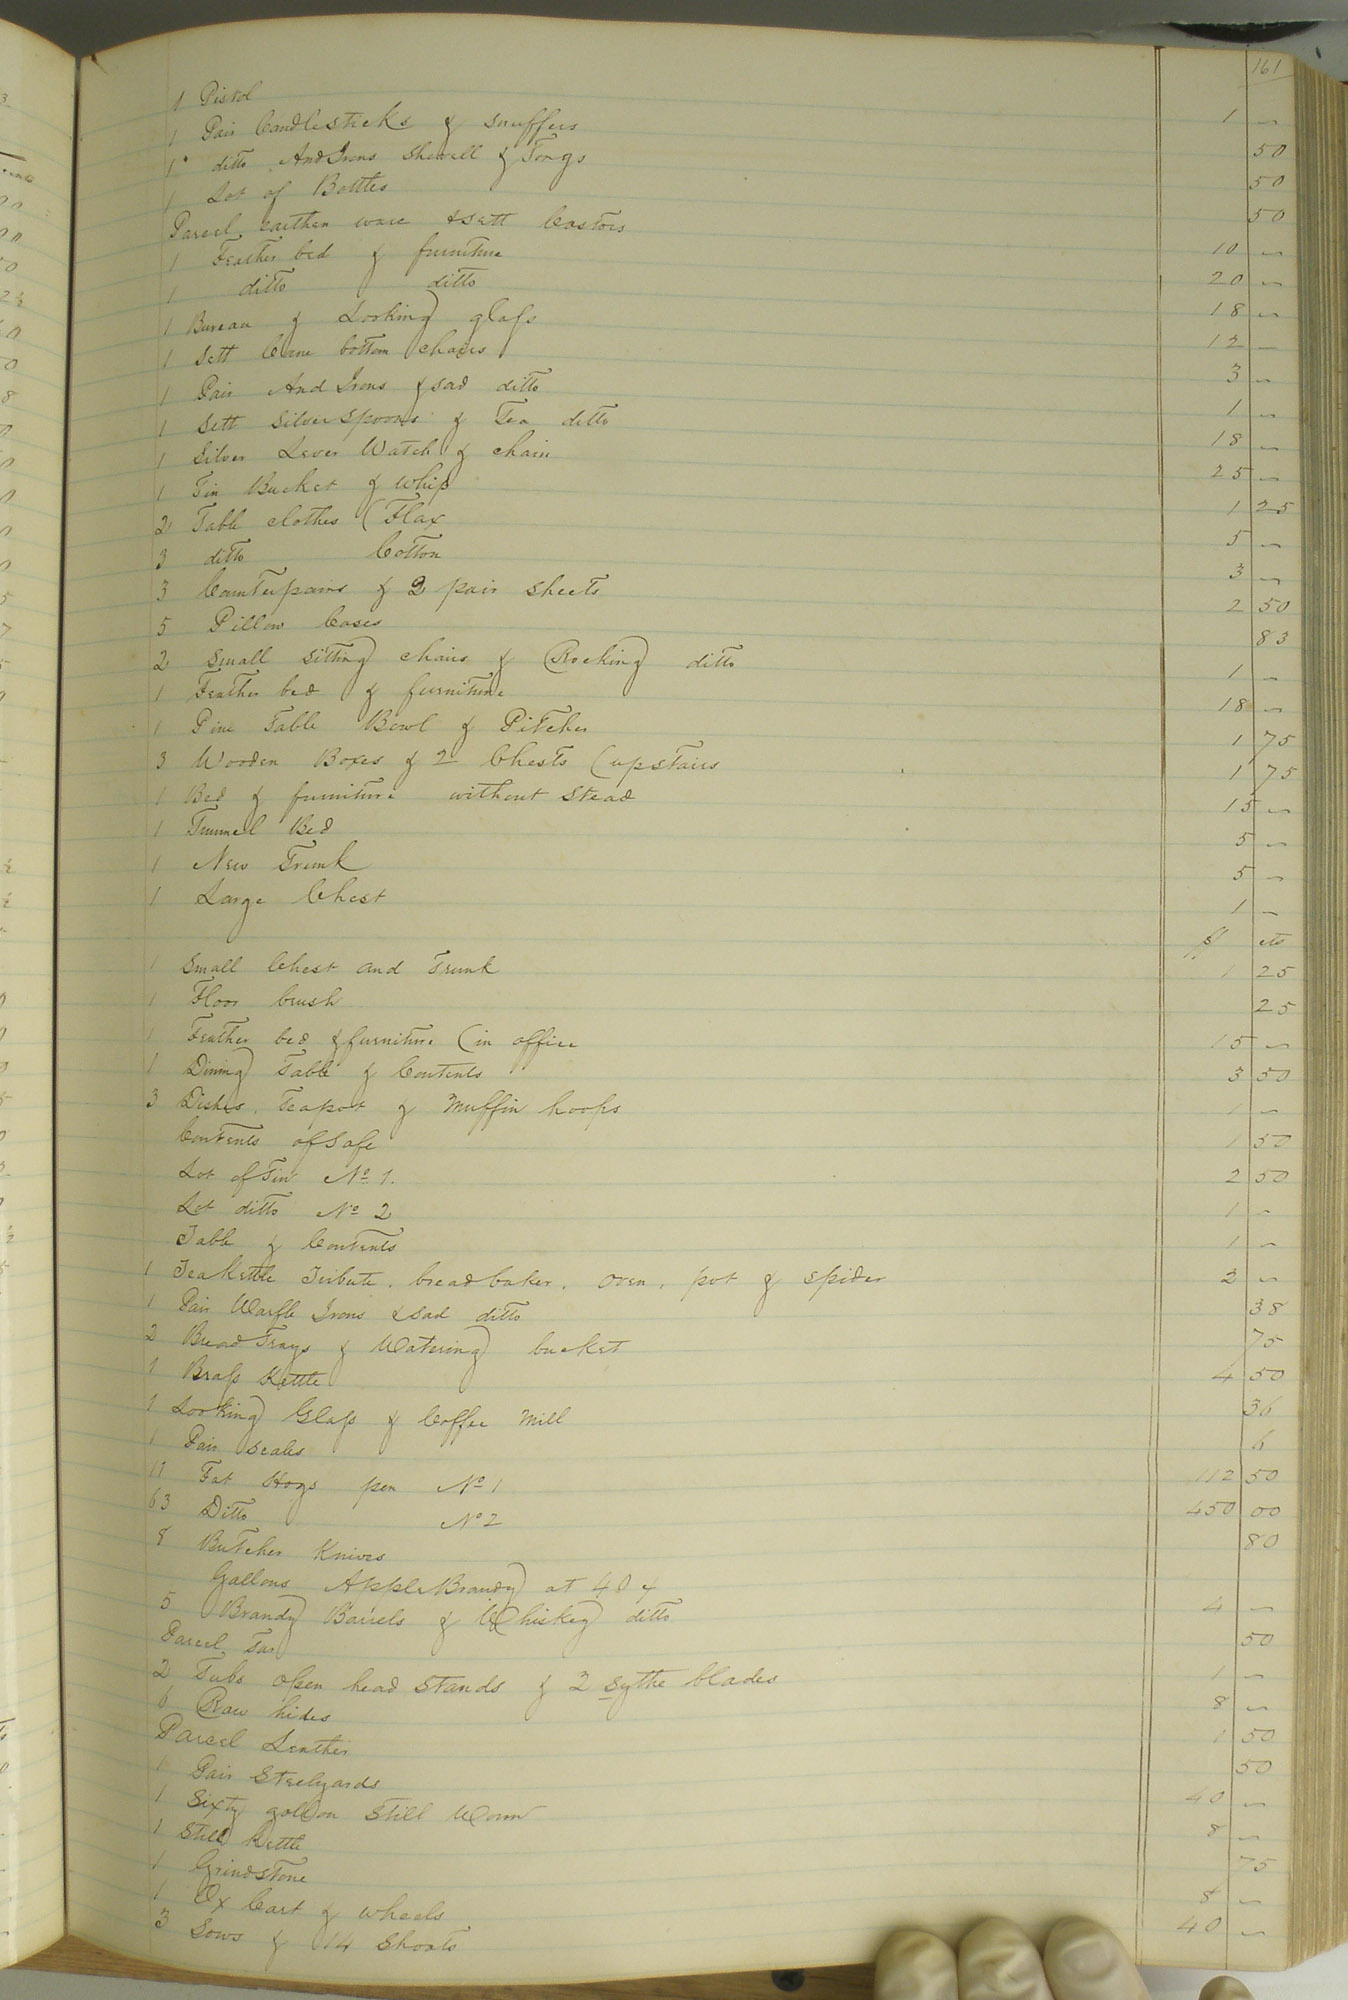 161
1 Pistol 1 —
1 Pair Candlesticks & snuffers 50
1 ditto AndIrons Shovell & Tongs 50
1 Lot of Bottles 50
Parcel earthen ware & sett Castors 10 —
1 Feather bed & furniture 20 —
1 ditto ditto 18 —
1 Bureau & Looking glass 12 —
1 Sett Cane bottom chairs 3 —
1 Pair And Irons & sad ditto 1 —
1 Sett silver spoons & Tea ditto 18 —
1 Silver Lever Watch & chain 25 —
1 Tin Bucket & Whip 1 25
2 Table clothes (Flax 5 —
3 ditto Cotton 3 —
3 Counterpains & 2 pair sheets 2 50
5 Pillow Cases 83
2 Small sitting chairs & Rocking ditto 1 —
1 Feather bed & furniture 18 —
1 Pine Table Bowl & Pitcher 1 75
3 Wooden Boxes & 2 Chests (upstairs 1 75
1 Bed & furniture without Stead 15 —
1 Trunnel Bed 5 —
1 New Trunk 5 —
1 Large Chest 1 —
$ cts
1 Small Chest and Trunk 1 25
1 Floor brush 25
1 Feather bed & furniture (in office 15 —
1 Dining Table & Contents 3 50
3 Dishes, Teapot & Muffin hoops 1 —
Contents of Safe 1 50
Lot of Tin No 1. 2 50
Lot ditto No 2 1 —
Table & Contents 1 —
1 Teakettle bread baker, oven, pot & spider 2 —
1 Pair Waffle Irons & sad ditto 38
2 Bread Trays & Watering bucket 75
1 Brass Kettle 4 50
1 Looking Glass & Coffee Mill 36
1 Pair scales 6
17 Fat Hogs pen No 1 112 50
63 Ditto No 2 450 00
8 Butcher Knives 80
Gallons Apple Brandy at 40 ¢
5 Brandy Barrels & Whiskey ditto 4 —
Parcel Tar 50
2 Tubs open head Stands & 2 sythe blades 1 —
6 Raw hides 8 —
Parcel Leather 1 50
1 Pair Steelyards 50
1 Sixty gallon Still Worm 40 —
1 Still Kettle 8 —
1 Grindstone 75
1 Ox Cart & wheels 8 —
3 Sows & 14 Shoats 40 —